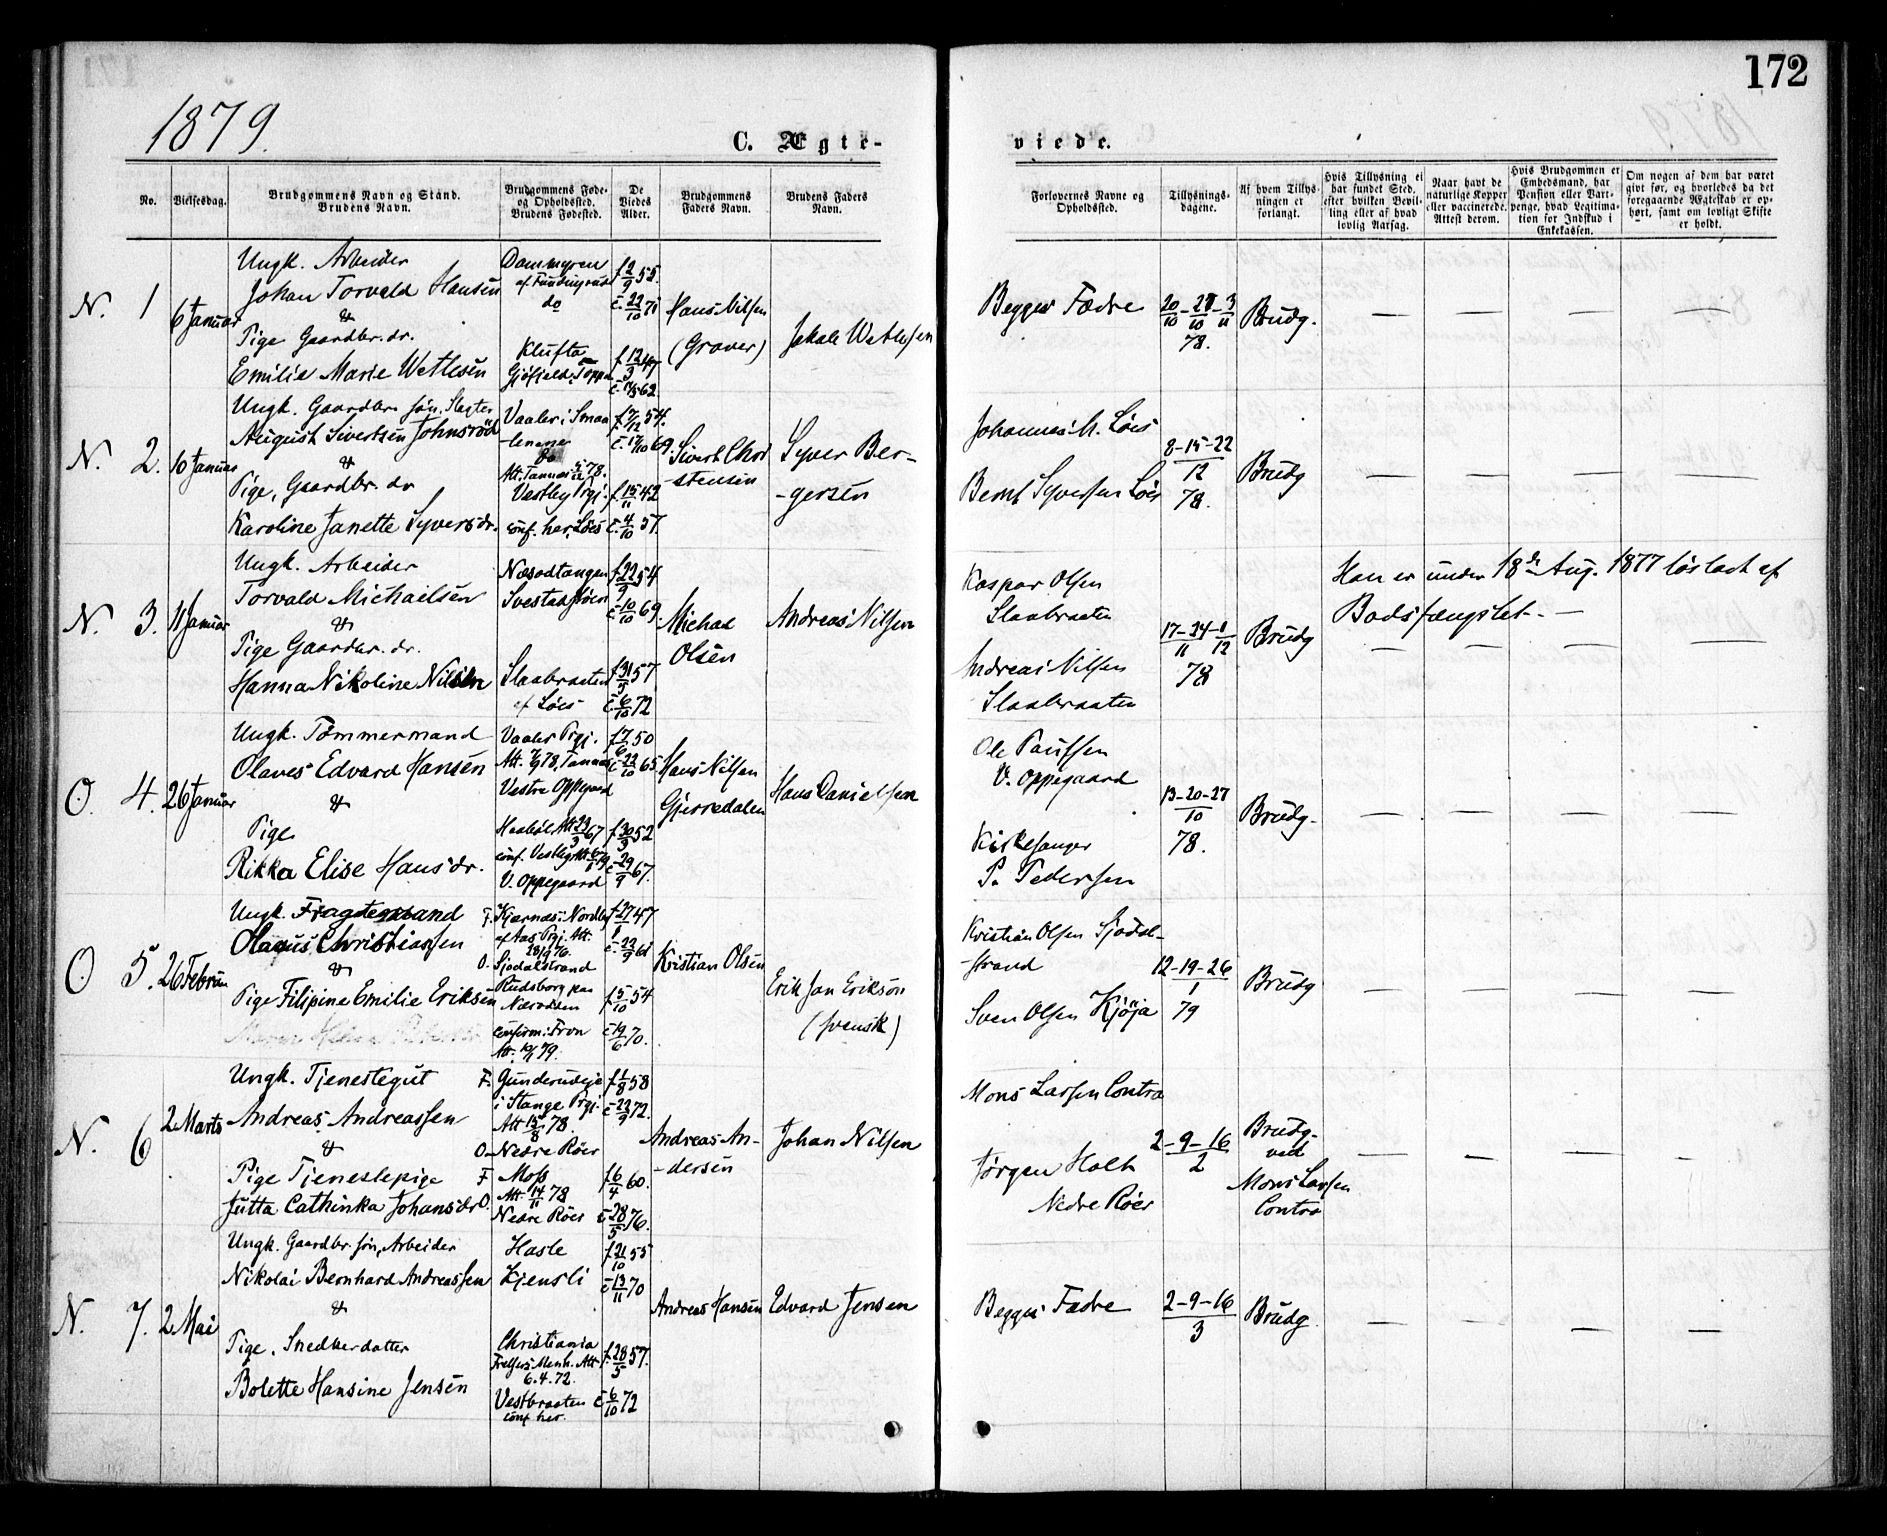 172
1879.
C. Ægte-
viede.
No.
Vielsesdag.
Brudgommens Navn og Stand.
Brudens Navn.
Brudgommens Føde-
og Opholdssted.
Brudens Fødested.
De
Viedes
Alder.
Brudgommens
Faders Navn.
Brudens Faders
Navn.
Forlovernes Navne og
Opholdssted.
Tillysnings-
dagene.
Af hvem Tillys-
ningen er
forlangt.
Hvis Tillysning ei
har fundet Sted,
efter hvilken Bevil-
ling eller af hvad
lovlig Aarsag.
Naar havt de
naturlige Kopper
eller vaccinerede.
Attest derom.
Hvis Brudgommen er
Embedsmand, har
Pension eller Vart-
penge, hvad Legitima-
tion for Indskud i
Enkekassen.
Om nogen af dem har været
givt før, og hvorledes da det
foregaaende Ægteskab er op-
hørt, samt om lovligt Skifte
er holdt.
N. 1 6 Januar
Ungk. Arbeider
Johan Torvald Hansen
&
Pige Gaardbr. dr.
Emilie Marie Wetlesen
Dammyren
do
Klufta
f. 2/9 55.
c. 22/10 71
f. 12/3 47
Hans Nilsen
(Graver)
Jakob Wetlesen
Begges Fædre
20/10 - 27/10 - 3/11
78.
Brudg.
— — — —
N. 2. 10 Januar
Ungk. Gaardbr. søn, Slagter
August Sivertsen Johnsrød
&
Pige, Gaardbr. dr
Karoline Janette Syversdr.
Vaaler i Smaa-
lenene
do
Vestby Prgj.
conf. her, Løes
f. 17/12 54.
c. 17/10 69.
f. 15/11 42
c. 4/10 57.
Sivert Chri
-stensen
Syver Ber-
-gersen
Johannes M. Løes
Bernt Syversen Løes
8-15-22
12
78.
Brudg
— — — —
N. 3. 11 Januar
Ungk. Arbeider
Torvald Michaelsen
&
Pige Gaardbr. dr.
Hanna Nikoline Nilsen
Næsodtangen
Slaabraaten
af Løes
f. 22/9 54
c. 10/10 69.
f. 31/5 57
c. 6/10 72
Michael
Olsen
Andreas Nilsen
Kaspar Olsen
Slaabraaten
Andreas Nilsen
Slaabraaten
17-24/11 - 1/12
78
Brudg
Han er under 18de Aug. 1877 løsladt af
Bodsfængslet. —
— — — —
O. 4. 26 Januar
Ungk. Tømmermand
Olaves Edvard Hansen
&
Pige
Rikka Elise Hansdr.
Vaaler Prgj.
Vestre Oppegaard
V. Oppegaard
f. 7/6 50
c. 22/10 65.
f. 30/3 52
c. 29/9 67.
Hans Nilsen
Gjerredalen
Hans Danielsen
Ole Paulsen
V. Oppegaard
Kirkesanger
P. Pedersen
13-20-27
10
78.
Brudg.
— — — —
O. 5. 26 Februar
Ungk. Fragtemand
Olaus Christiansen
&
Pige Filipine Emilie Eriksen
F. Kjærnæs i Nordby
af Aas Prgj. Att.
28/9 76.
O. Sjødalstrand
Rudsborg paa
Næsodden
confirm. i Fron
Att. 10/1 79.
f. 27/1 47
c. 22/9 61
f. 5/10 54
c. 19/6 70.
Kristian Olsen
Erik Jan Erikson
(svensk)
Kristian Olsen Sjødal-
-strand
Sven Olsen Kjøja
12-19-26
1
79
Brudg
— — — —
N. 6 2 Marts
Ungk. Tjenestegut
Andreas Andreassen
&
Pige Tjenestepige
Jutta Cathinka Johansdr.
F. Gunderudeje
i Stange Prgj.
Att 15/8 78.
O. Nedre Røer
F Moss
Att. 14/11 78
O. Nedre Røer
f. 1/8 58
c. 22/9 72.
f. 6/4 60.
c. 28/5 76.
Andreas An-
-dersen
Johan Nilsen
Mons Larsen Contra
Jørgen Holt
Nedre Røer
2-9-16
2
Brudg.
ved
Mons Larsen
Contra
— — — —
N. 7. 2 Mai
Ungk. Gaardbr. søn, Arbeider
Nikolai Bernhard Andreassen
&
Pige, Snedkerdatter
Bolette Hansine Jensen
Hasle
Ljensli
Christiania
Frelsers Menh. Att.
6.4.72.
Vestbraaten
conf her.
f. 21/10 55
c. 13/11 70
f. 28/5 57.
c. 6/10 72
Andreas Hansen
Edvard Jensen
Begges Fædre
2-9-16
3
Brudg.
— — — —